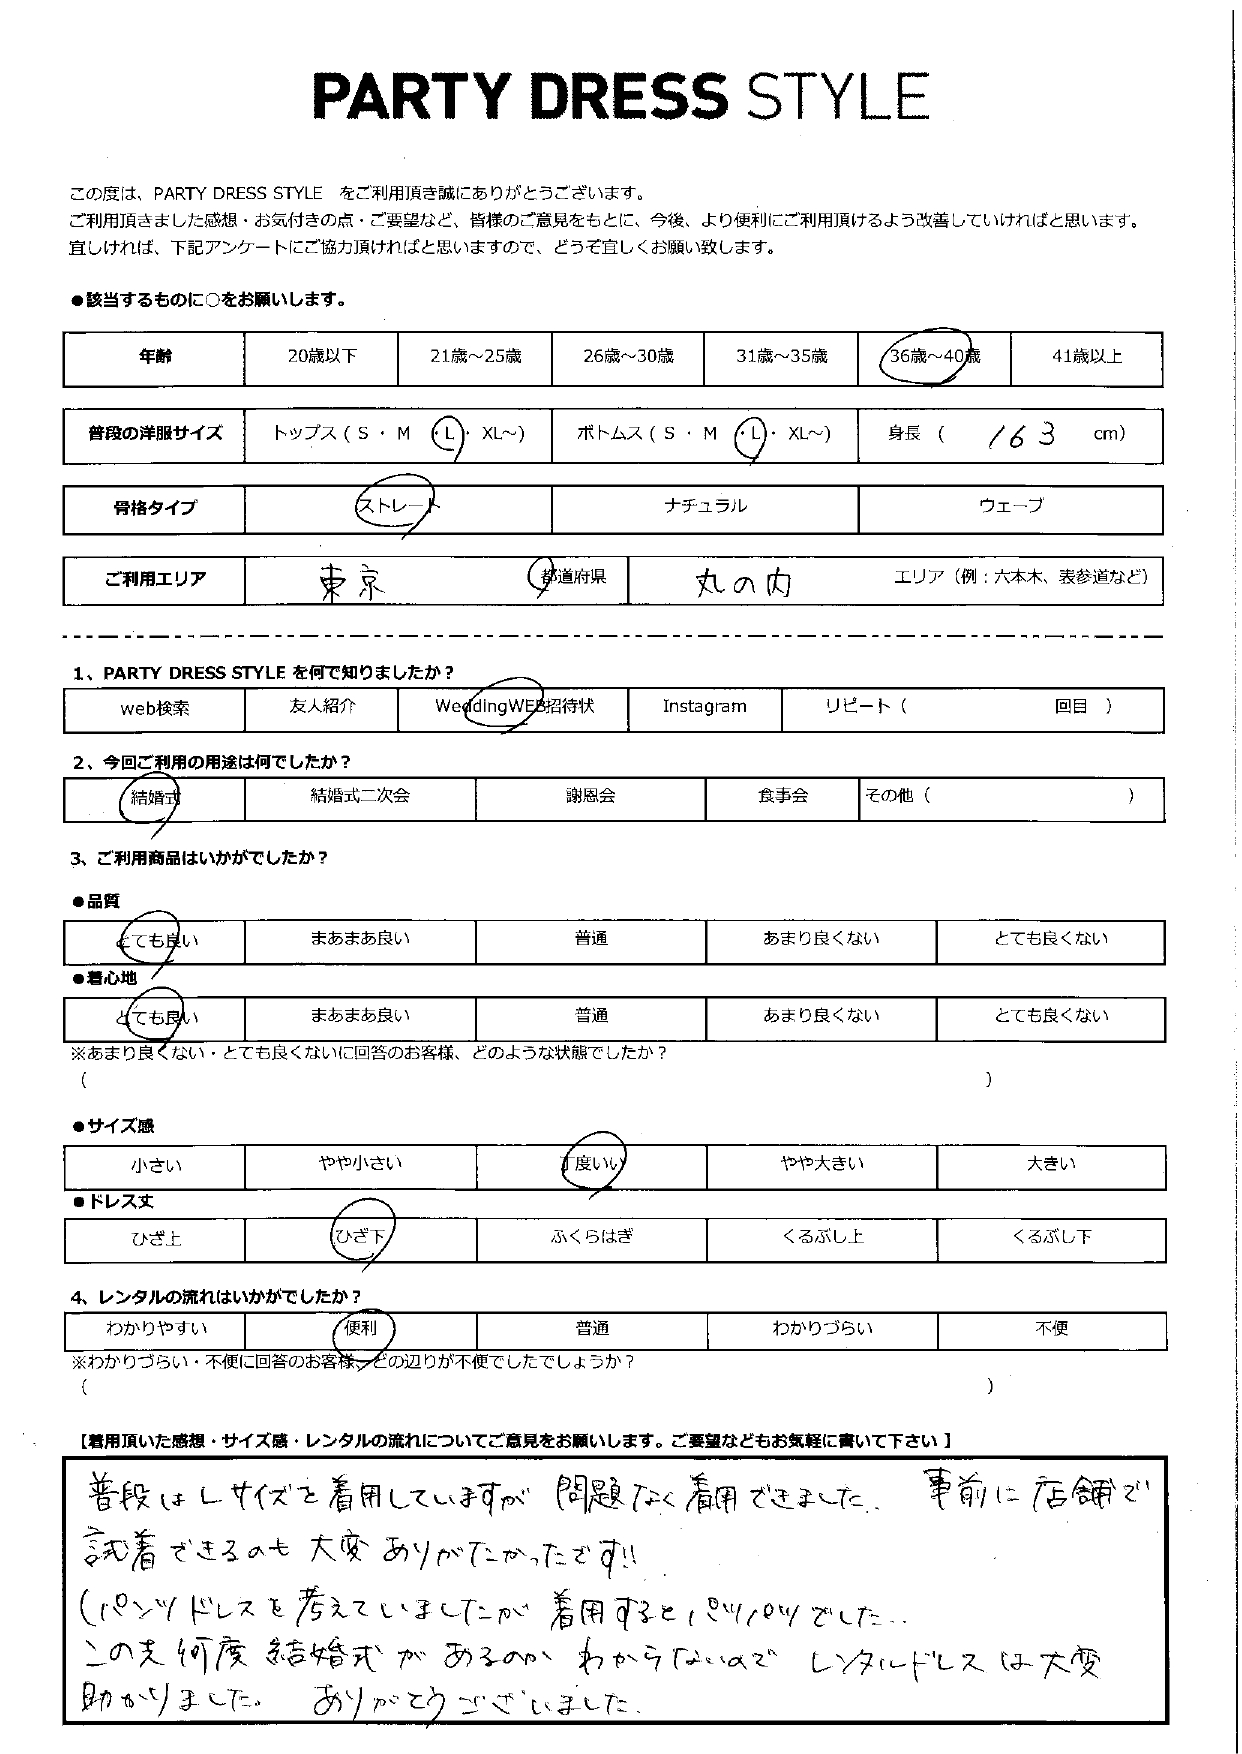 PARTY DRESS STYLE
この度は、PARTY DRESS STYLE をご利用頂き誠にありがとうございます。
ご利用頂きました感想・お気付きの点・ご要望など、皆様のご意見をもとに、今後、より便利にご利用頂けるよう改善していければと思います。
宜しければ、下記アンケートにご協力頂ければと思いますので、どうぞ宜しくお願い致します。
●該当するものに○をお願いします。
年齢 20歳以下 21歳～25歳 26歳～30歳 31歳～35歳 36歳～40歳 41歳以上
普段の洋服サイズ トップス ( S ・ M ・L・ XL～) ボトムス ( S ・ M ・L・ XL～) 身長 ( 163 cm)
骨格タイプ ストレート ナチュラル ウェーブ
ご利用エリア 東京 都道府県 丸の内 エリア（例：六本木、表参道など）
1、PARTY DRESS STYLE を何で知りましたか？
web検索 友人紹介 WeddingWEB招待状 Instagram リピート（ 回目 ）
2、今回ご利用の用途は何でしたか？
結婚式 結婚式二次会 謝恩会 食事会 その他（ ）
3、ご利用商品はいかがでしたか？
●品質
とても良い まあまあ良い 普通 あまり良くない とても良くない
●着心地
とても良い まあまあ良い 普通 あまり良くない とても良くない
※あまり良くない・とても良くないに回答のお客様、どのような状態でしたか？
( )
●サイズ感
小さい やや小さい 丁度いい やや大きい 大きい
●ドレス丈
ひざ上 ひざ下 ふくらはぎ くるぶし上 くるぶし下
4、レンタルの流れはいかがでしたか？
わかりやすい 便利 普通 わかりづらい 不便
※わかりづらい・不便に回答のお客様、どの辺りが不便でしたでしょうか？
( )
【着用頂いた感想・サイズ感・レンタルの流れについてご意見をお願いします。ご要望などもお気軽に書いて下さい 】
普段はLサイズを着用していますが 問題なく着用できました. 事前に店舗で
試着できるのも 大変ありがたかったです!!
(パンツドレスを考えていましたが 着用するとパツパツでした..
この先何度 結婚式が あるのか わからないので レンタルドレスは大変
助かりました。 ありがとうございました.